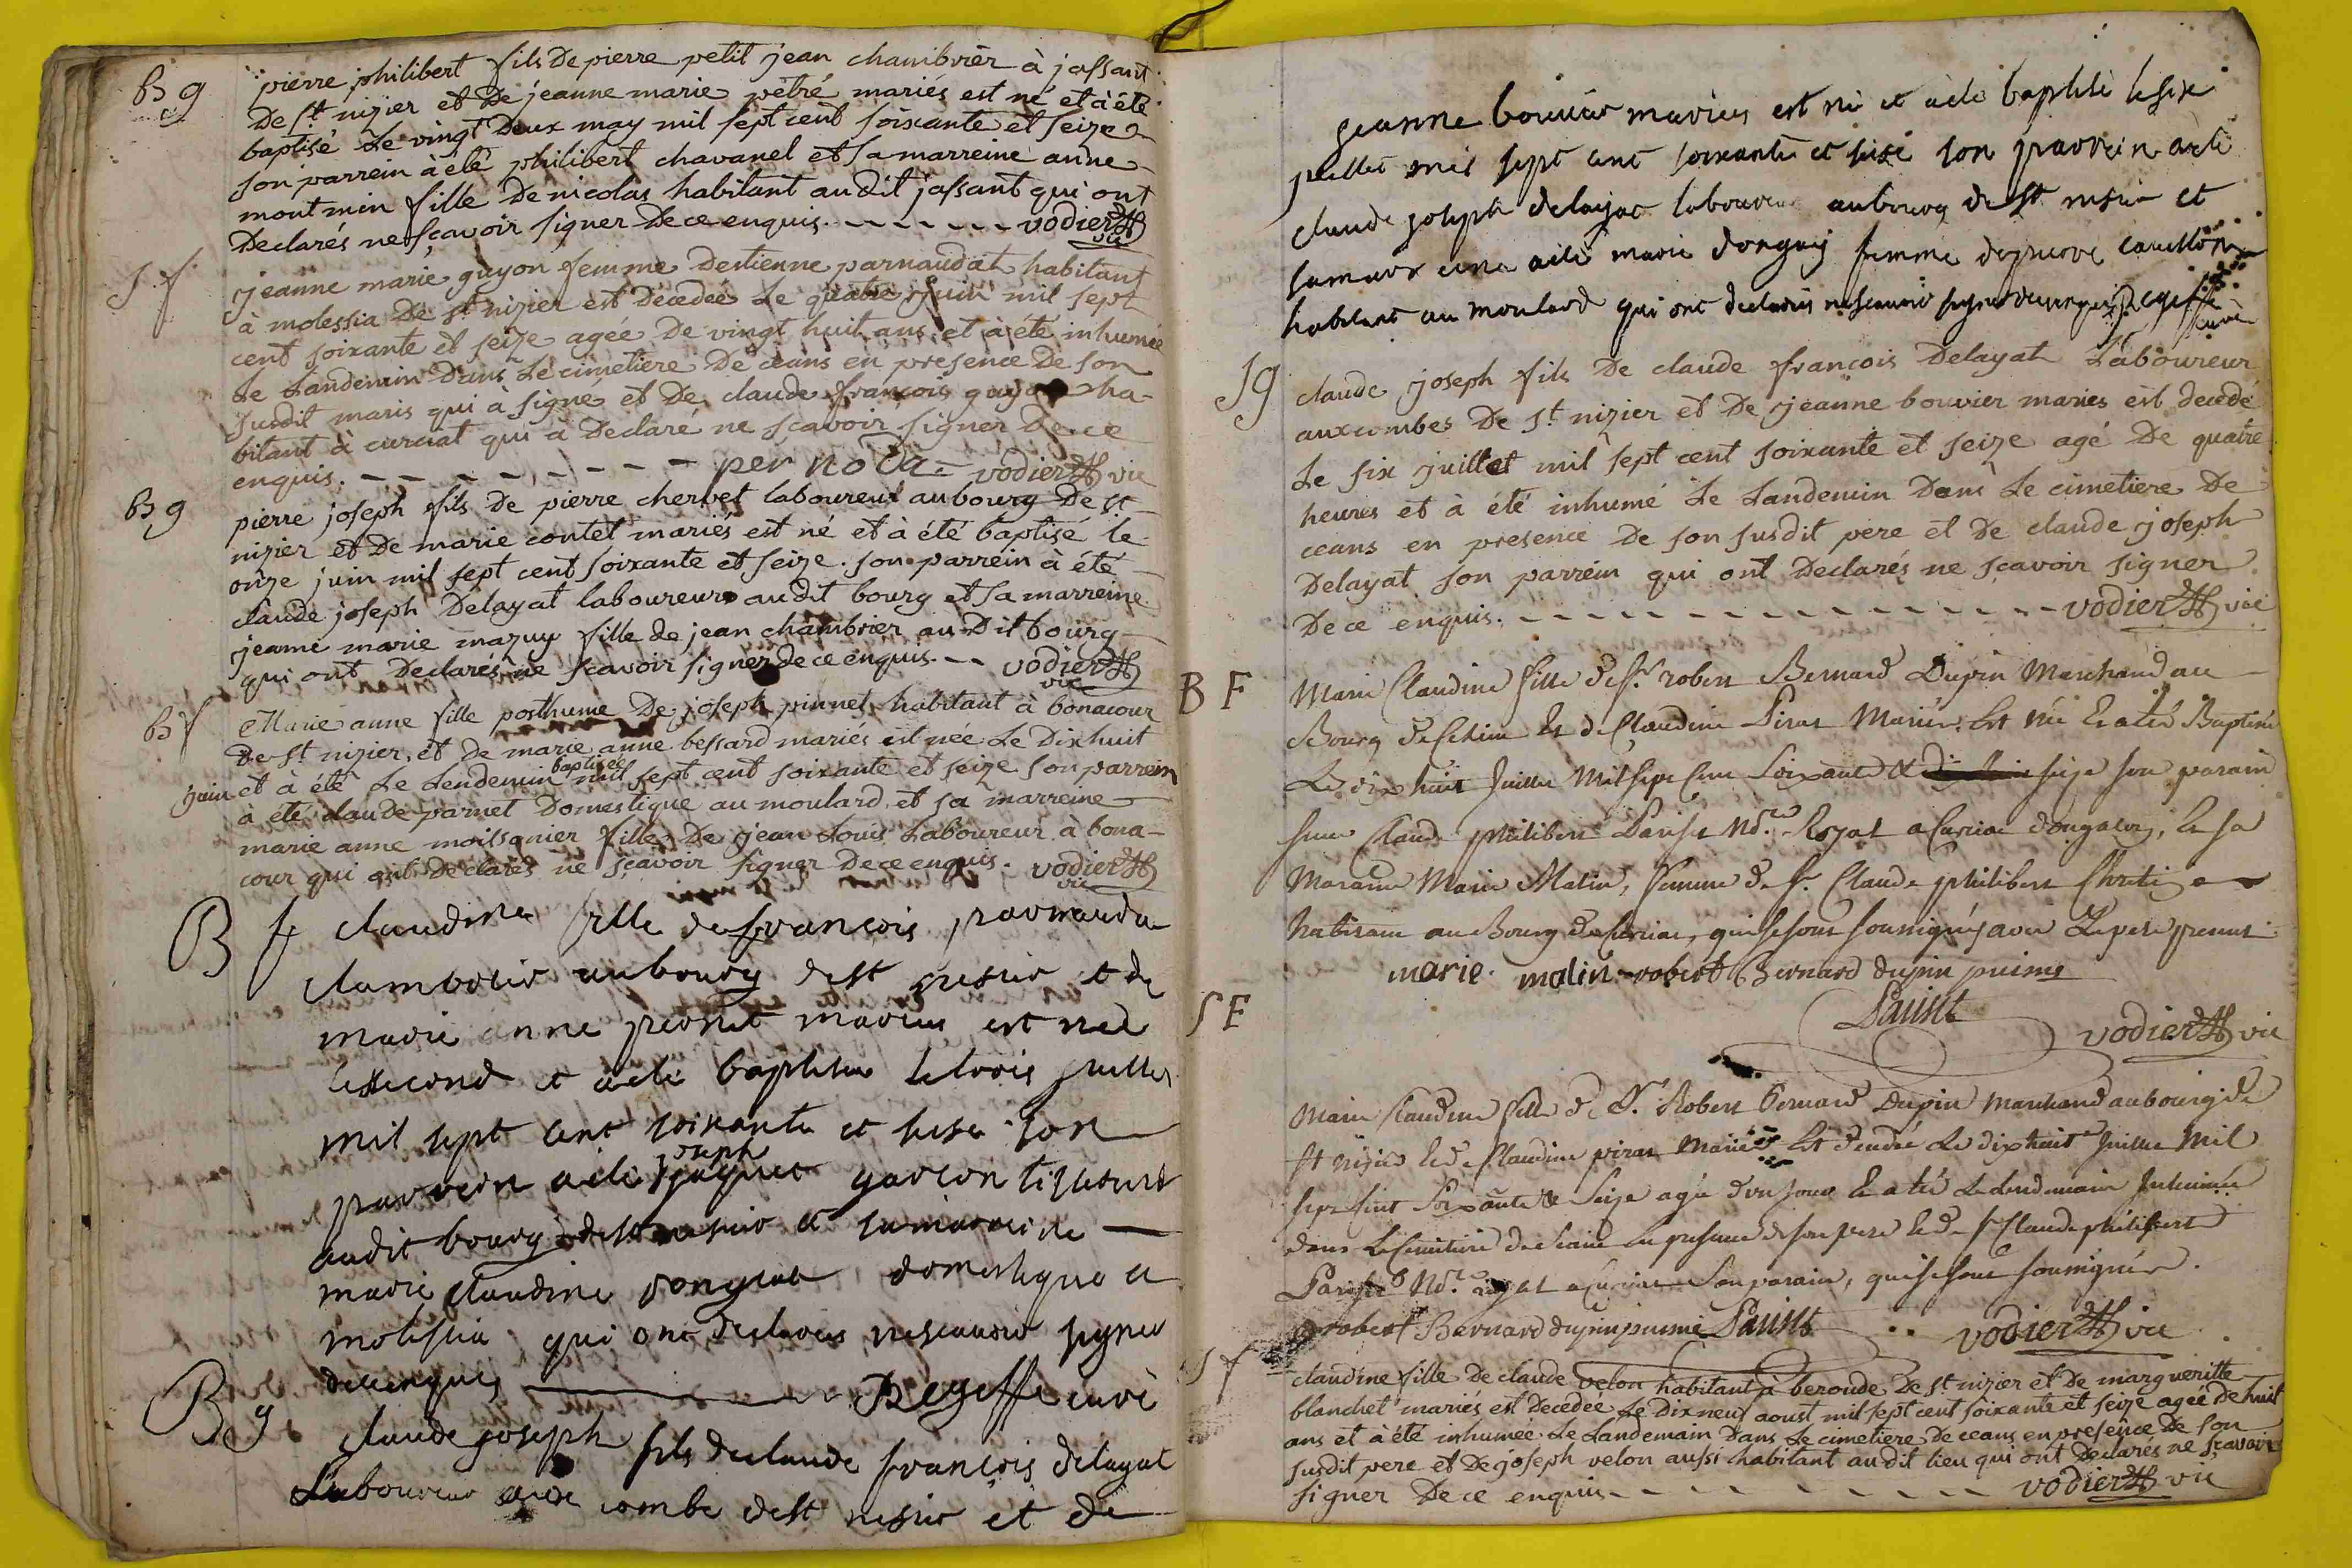 B g
pierre philibert fils De pierre petit jean chambrier à jassant
De st nizier et De jeanne marie pètré mariés est né et à été
baptisé Le vingt Deux may mil sept cent soixante et seize
son parrein à été philibert chavanel et sa marreine anne
montmin fille De nicolas habitant au dit jassant qui ont
Declarés ne sçavoir signer De ce enquis. vodier
vic
S f
jeanne marie guyon femme destienne parnaudat habitant
à molessia De st nizier est Decedée Le quatre juin mil sept
cent soixante et seize agée De vingt huit ans et à été inhumée
Le Landemin Dans Le cimetiere De ceans en presence De son
susdit maris qui à signé et De claude françois guyon ha-
bitant à curciat qui à Declaré ne sçavoir signer De ce
enquis. per noda vodier vic
B g
pierre joseph fils De pierre chervet laboureur au bourg De st
nizier et De marie contet mariés est né et à été baptisé le
onze juin mil sept cent soixante et seize. son parrein à été
claude joseph Delayat laboureur audit bourg et sa marreine
jeanne marie mazuy fille de jean chambrier au Dit bourg
qui ont Declarés ne sçavoir signer de ce enquis. vodier
vic
B f
Marie anne fille posthume De joseph pinnet habitant à bonacour
De st nizier, et de marie anne bessard mariés est née Le Dixhuit
juin et à été Le Lendemin baptisée mil sept cent soixante et seize son parrein
à été claude parnet Domestique au moulard et sa marreine
marie anne moissonier fille De jean Louis Laboureur à bona-
cour qui ont Declarés ne sçavoir signer De ce enquis. vodier
vic
B f claudine fille de françois parnauda
chambrier au bourg de st nesier et de
marie anne pernet maries est nee
le second et a ete baptisee le trois juillet
mil sept cent soixante et sese son
parrein a ete joseph garcon tisserand
audit bourg de st nesier et sa marreine
marie claudine domestique a
molissia qui ont declares ne scavoir signer
de ce enquis Regeffe curé
B g claude joseph fils de claude françois delayat
Laboureur aux combe de st nesier et de
jeanne bouvier maries est ne et a ete baptisé le six
juillet mil sept cent soixante et sese son parrein a ete
claude joseph delayat laboureur au bourg de st nesier et
sa marreine a ete marie donguy femme de pierre
habitant au moulard qui ont declares ne scavoir signer de ce enquis Regeffe
curé
S g
claude joseph fils De claude françois Delayat Laboureur
aux combes De st nizier et De jeanne bouvier mariés est decedé
Le six juillet mil sept cent soixante et seize agé De quatre
heures et à été inhumé Le Landemin Dans Le cimetiere De
ceans en presence De son susdit pere et De claude joseph
Delayat son parrein qui ont Declarés ne sçavoir signer
De ce enquis. vodier vic
B F
Marie Claudine fille de Sr. robert Bernard Dupin Marchand au
Bourg de Et de Claudine Piros Mariés Est née Et a été Baptisée
Le dix huit Juillet Mil sept Cent Soixante & seize son parain
sieur Claude philibert Parisst Nore. Royal a Curciat dongalon, Et sa
Maraine Marie Malin, femme de Sr. Claude philibert
habitant au Bourg de Curciat, qui se sont soussignés avec Le pere present
marie malin robert Bernard dupin puisné
Parisst
vodier vic
S F
Marie Claudine fille de Sr. Robert Bernard Dupin Marchand au bourg de
St Nizier Et de Claudine piros Mariés Est decedée Le dix huit Juillet Mil
sept Cent Soixante & Seize agée d'un jour Et a été Le lendemain Inhumée
dans Le Cimetiere de Ceans en presence de son pere Et de Sr Claude philibert
Parisst Nore. royal a Curciat Son parain, qui se sont soussignés.
robert Bernard dupin puisné Parisst vodier vic
S f
claudine fille De claude velon habitant à beroude De st nizier et De margueritte
blanchet mariés est Decédée Le Dixneuf aoust mil sept cent soixante et seize agée De huit
ans et à été inhumée Le Landemain Dans Le cimetiere De ceans en presence De son
susdit pere et De joseph velon aussi habitant au dit lieu qui ont Declarés ne sçavoir
signer De ce enquis vodier vic